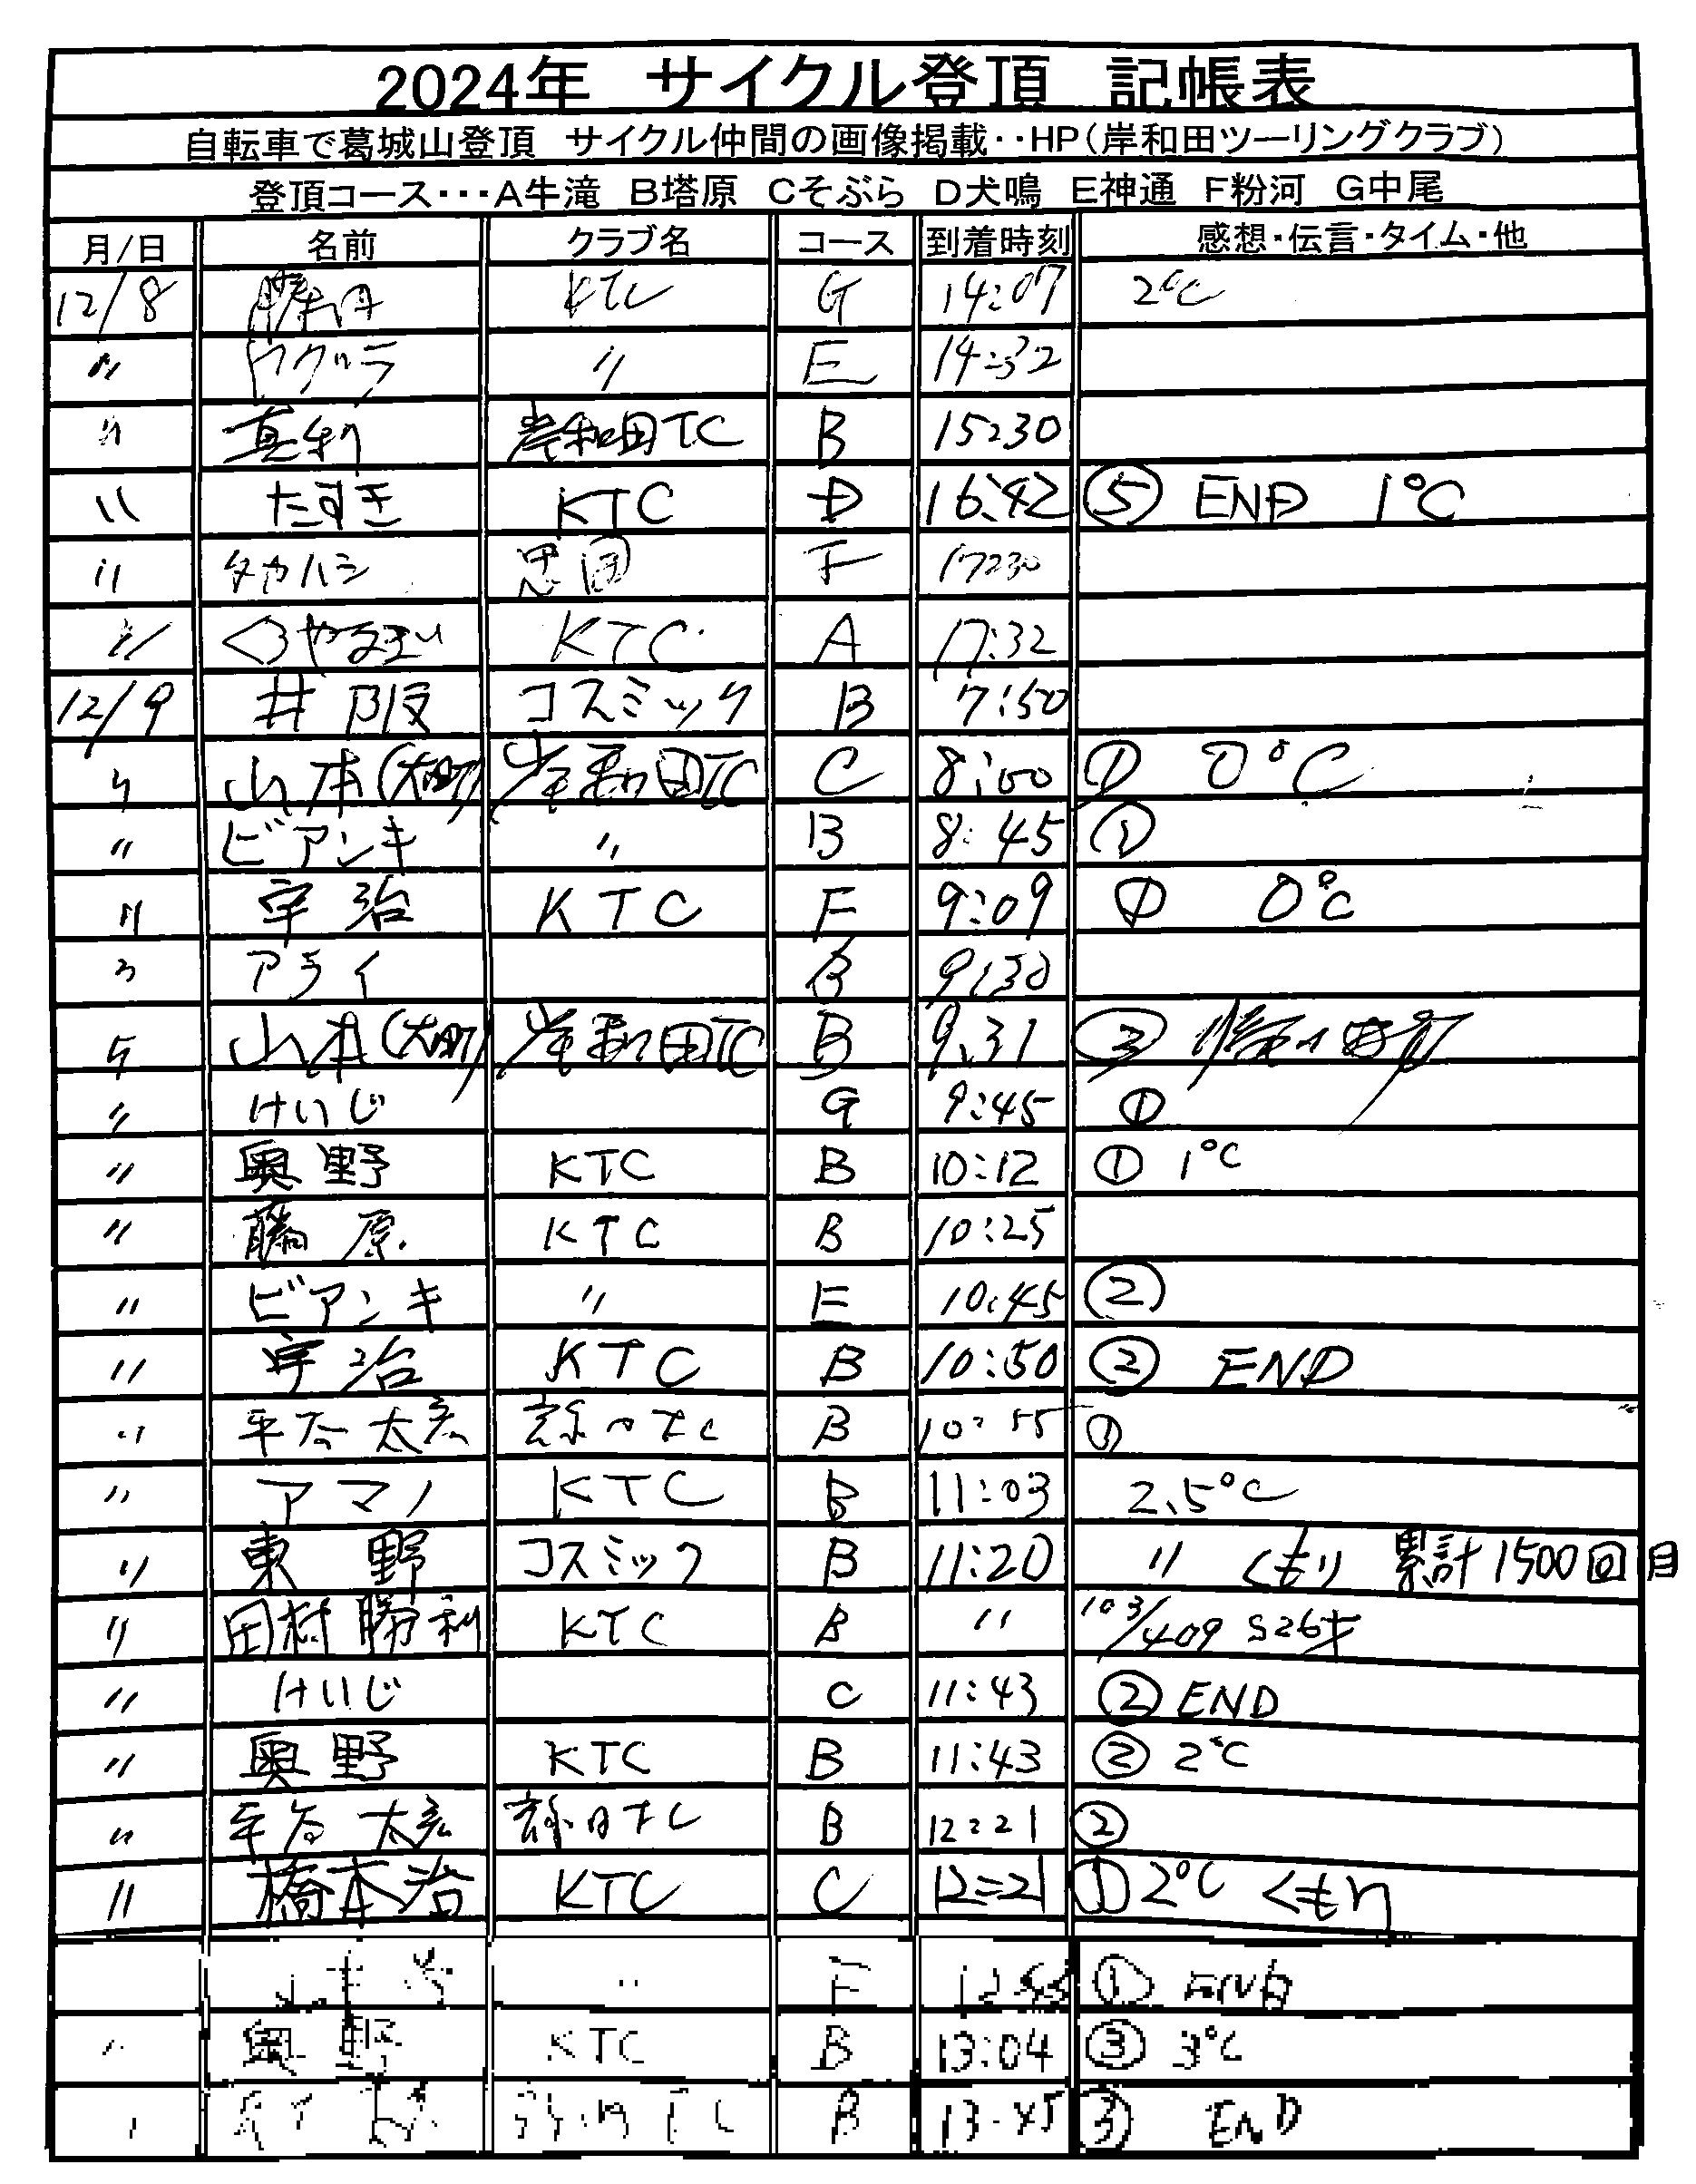 2024年 サイクル登頂 記帳表
自転車で葛城山登頂 サイクル仲間の画像掲載‥HP(岸和田ツーリングクラブ)
登頂コース・・・A牛滝 B塔原 Cそぶら D犬鳴 E神通 F粉河 G中尾
月/日 名前 クラブ名 コース 到着時刻 感想・伝言・タイム・他
12/8 KTC G 14:07 2℃
〃 〃 E 14:32
〃 真利 岸和田TC B 15:30
〃 たすき KTC D 16:42 ⑤ END 1℃
〃 タカハシ F 17:30
〃 KTC A 17:32
12/9 井阪 コスミック B 7:50
〃 山本(大町) 岸和田TC C 8:00 ① 0℃
〃 ビアンキ 〃 B 8:45 ①
〃 宇治 KTC F 9:09 ① 0℃
〃 アライ B 9:30
〃 山本(大町) 岸和田TC B 9:31 ③
〃 けいじ G 9:45 ①
〃 奥野 KTC B 10:12 ① 1℃
〃 藤原 KTC B 10:25
〃 ビアンキ 〃 E 10:45 ②
〃 宇治 KTC B 10:50 ② END
〃 B 10:55 ①
〃 アマノ KTC B 11:03 2.5℃
〃 東野 コスミック B 11:20 〃 くもり 累計1500回目
〃 田村勝利 KTC B 〃 103/409 S26才
〃 けいじ C 11:43 ② END
〃 奥野 KTC B 11:43 ② 2℃
〃 B 12:21 ②
〃 橋本治 KTC C 12:21 ① 2℃ くもり
〃 F ① END
〃 奥野 KTC B 13:04 ③ 3℃
B 13:45 ③ END